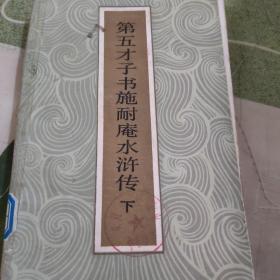 第五才子书施耐庵水浒传 下